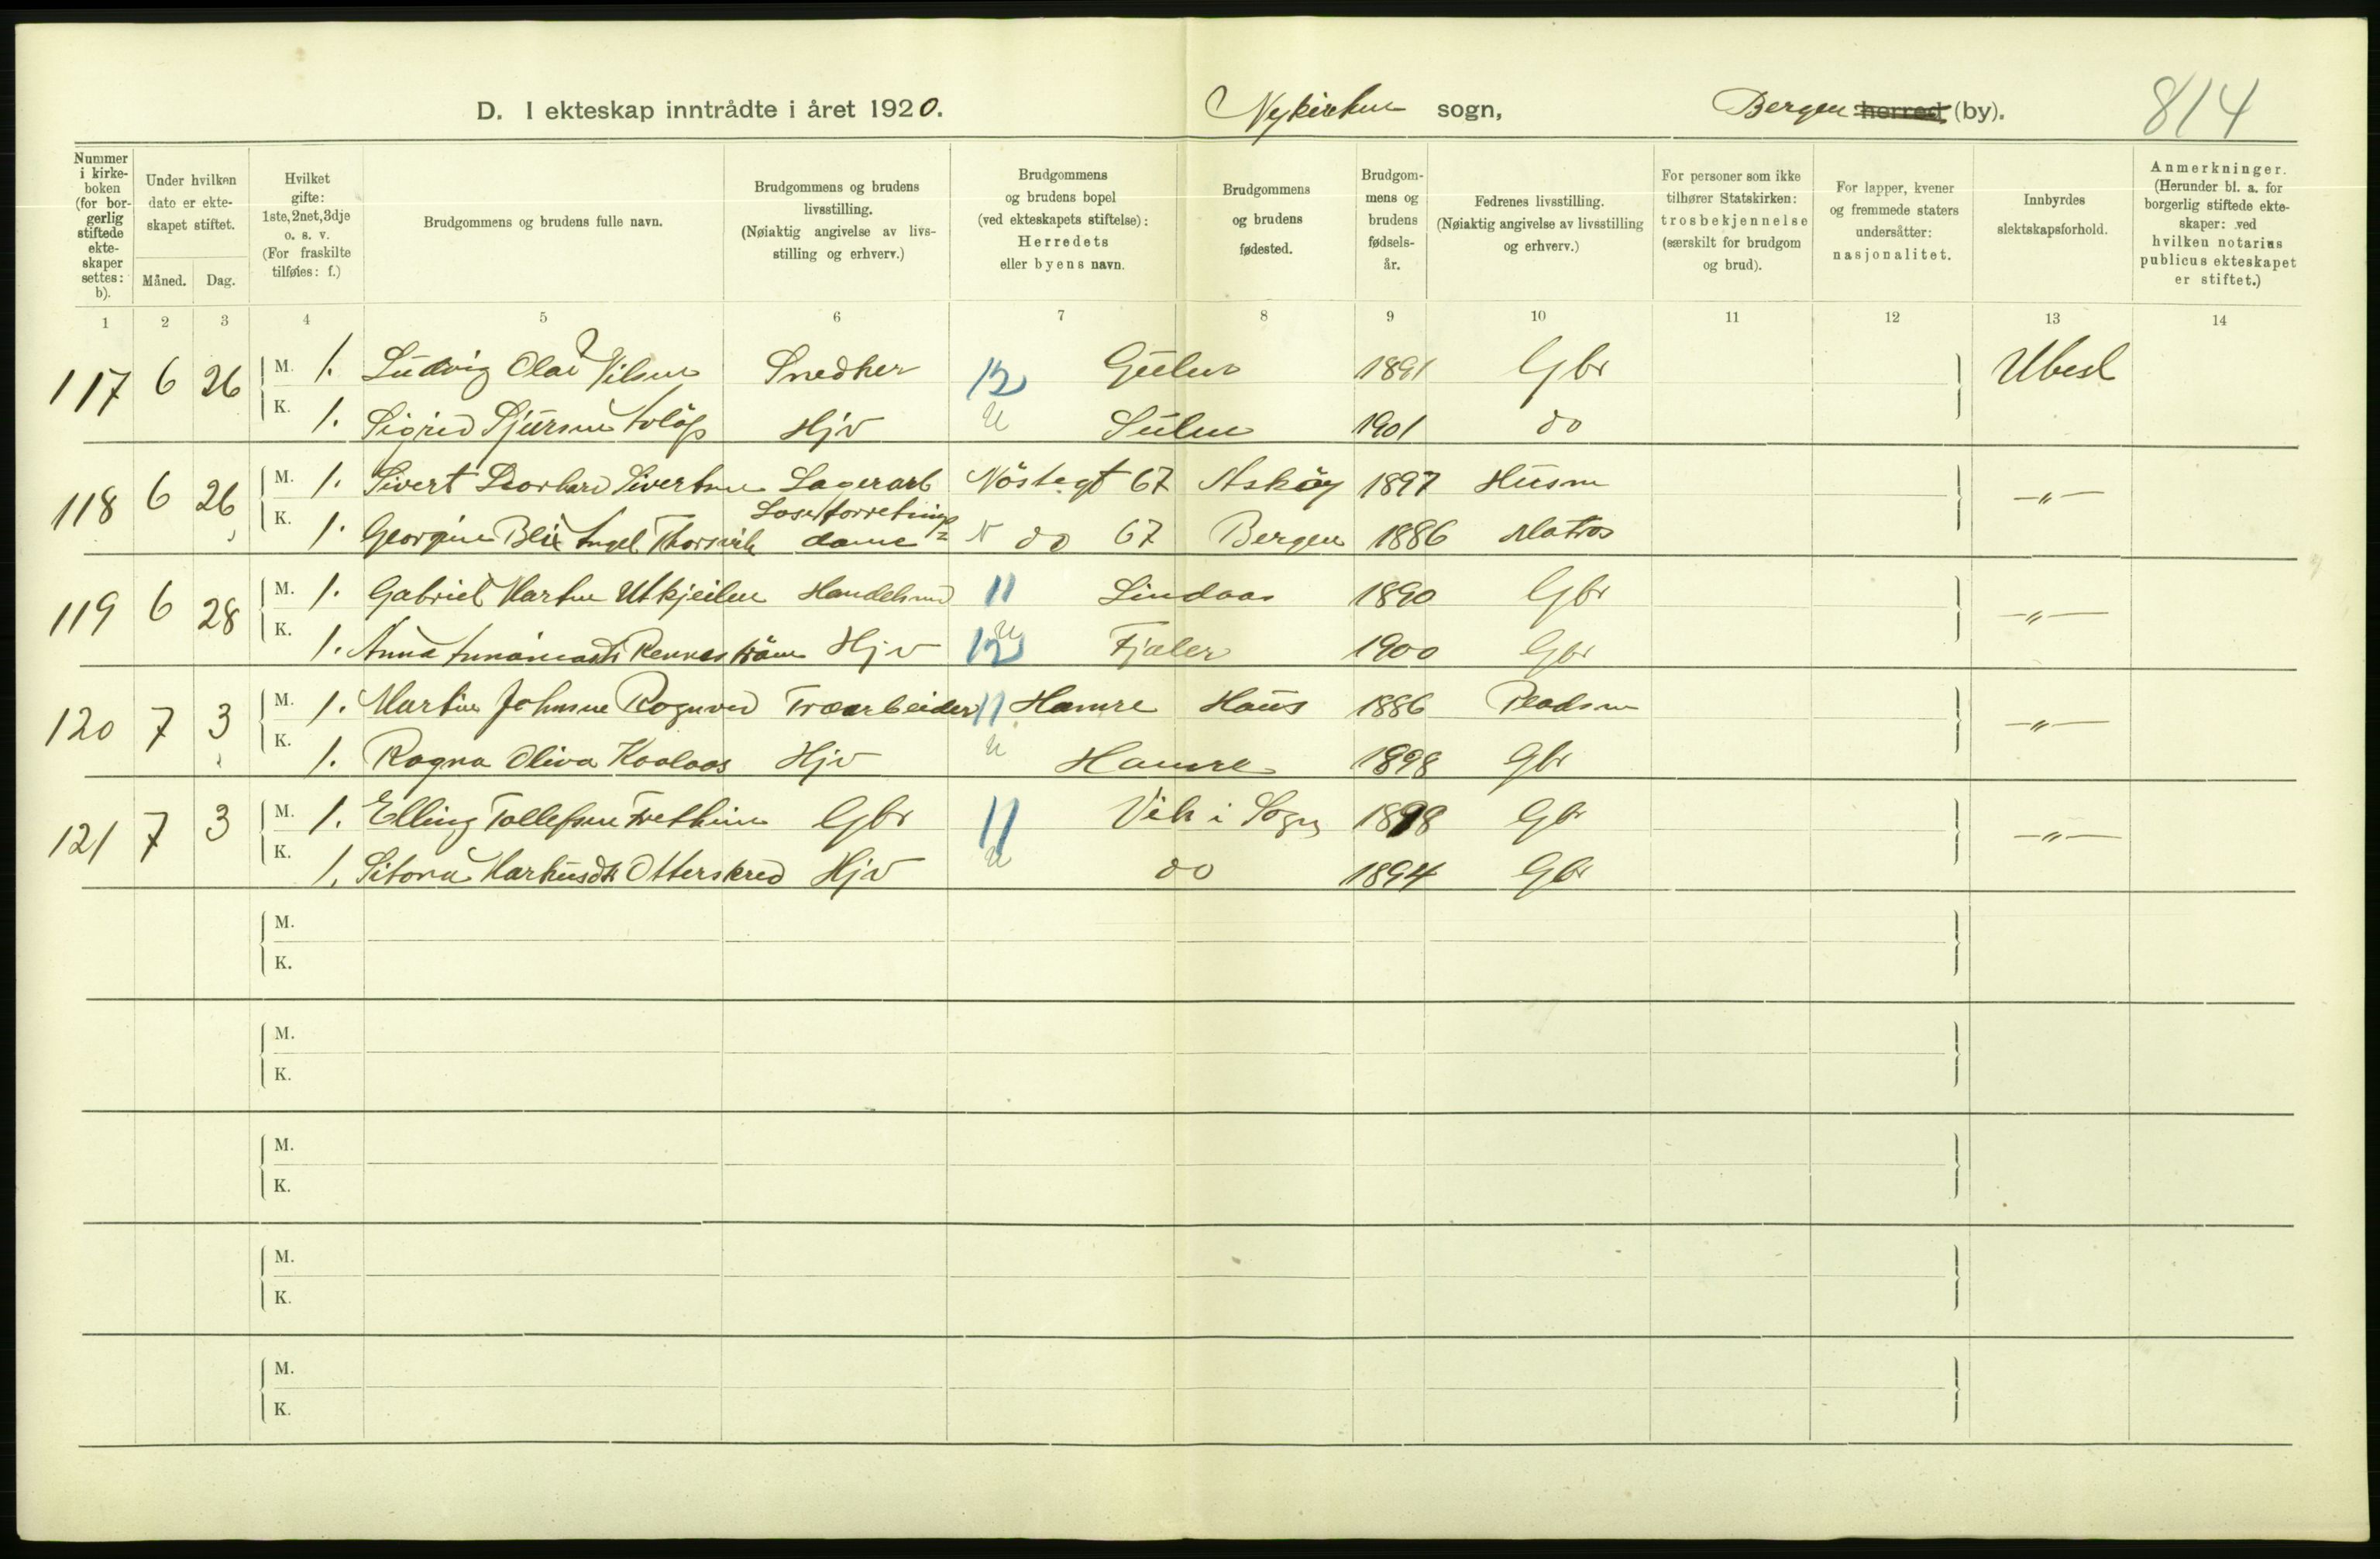 D. I ekteskap inntrådte i året 1920. Nykirken sogn, Bergen herred (by). 814
Nummer i kirkeboken (for borgerlig stiftede ekteskaper settes: b).
Under hvilken dato er ekteskapet stiftet.
Måned. Dag.
Hvilket gifte: 1ste, 2net, 3dje o. s. v. (For fraskilte tilføies: f.)
Brudgommens og brudens fulle navn.
Brudgommens og brudens livsstilling. (Nøiaktig angivelse av livsstilling og erhverv.)
Brudgommens og brudens bopel (ved ekteskapets stiftelse): Herredets eller byens navn.
Brudgommens og brudens fødested.
Brudgommens og brudens fødselsår.
Fedrenes livsstilling. (Nøiaktig angivelse av livsstilling og erhverv.)
For personer som ikke tilhører Statskirken: trosbekjennelse (særskilt for brudgom og brud).
For lapper, kvener og fremmede staters undersåtter: nasjonalitet.
Innbyrdes slektskapsforhold.
Anmerkninger. (Herunder bl. a. for borgerlig stiftede ekteskaper: ved hvilken notarius publicus ekteskapet er stiftet.)
1 2 3 4 5 6 7 8 9 10 11 12 13 14
117 6 26 M. 1. Ludvig Olai Nilsen Snedker 12 Gulen 1891 Gbr Ubesl
K. 1. Sigrid Sjursen Hjv U Sulen 1901 do
118 6 26 M. 1. Sivert Sivertsen Lagerarb Nöstegt 67 Askøy 1897 Husm —"—
K. 1. Georgine Blix Engel Thorsvik dame N do 67 Bergen 1886 Matros
119 6 28 M. 1. Gabriel Martin Utkjeilen Handelsmd 11 Lindaas 1890 Gbr —"—
K. 1. Anna Hjv 12 U Fjaler 1900 Gbr
120 7 3 M. 1. Martin Johnsen Træarbeider 11 Hamre Haus 1886 Pladsm —"—
K. 1. Ragna Oliva Kaalaas Hjv U Hamre 1898 Gbr
121 7 3 M. 1. Elling Tollefsen Gbr 11 Vik i Sogn 1898 Gbr —"—
K. 1. Markusdtr Otterskred Hjv U do 1894 Gbr
M.
K.
M.
K.
M.
K.
M.
K.
M.
K.